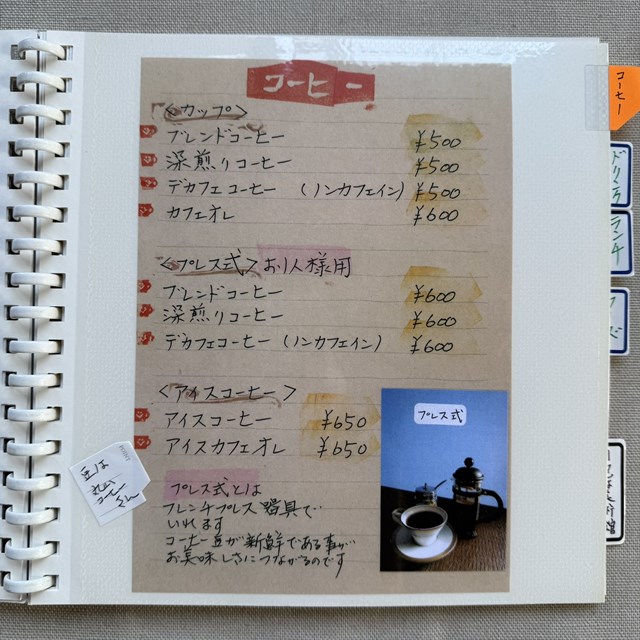 コーヒー
<カップ>
ブレンドコーヒー ¥500
深煎りコーヒー ¥500
デカフェコーヒー (ノンカフェイン) ¥500
カフェオレ ¥600
<プレス式> お1人様用
ブレンドコーヒー ¥600
深煎りコーヒー ¥600
デカフェコーヒー (ノンカフェイン) ¥600
<アイスコーヒー>
アイスコーヒー ¥650
アイスカフェオレ ¥650
プレス式
プレス式とは
フレンチプレス器具で
いれます
コーヒー豆が新鮮である事が
お美味しさにつながるのです
豆は
コーヒー
さん
コーヒー
ドリンク
ランチ